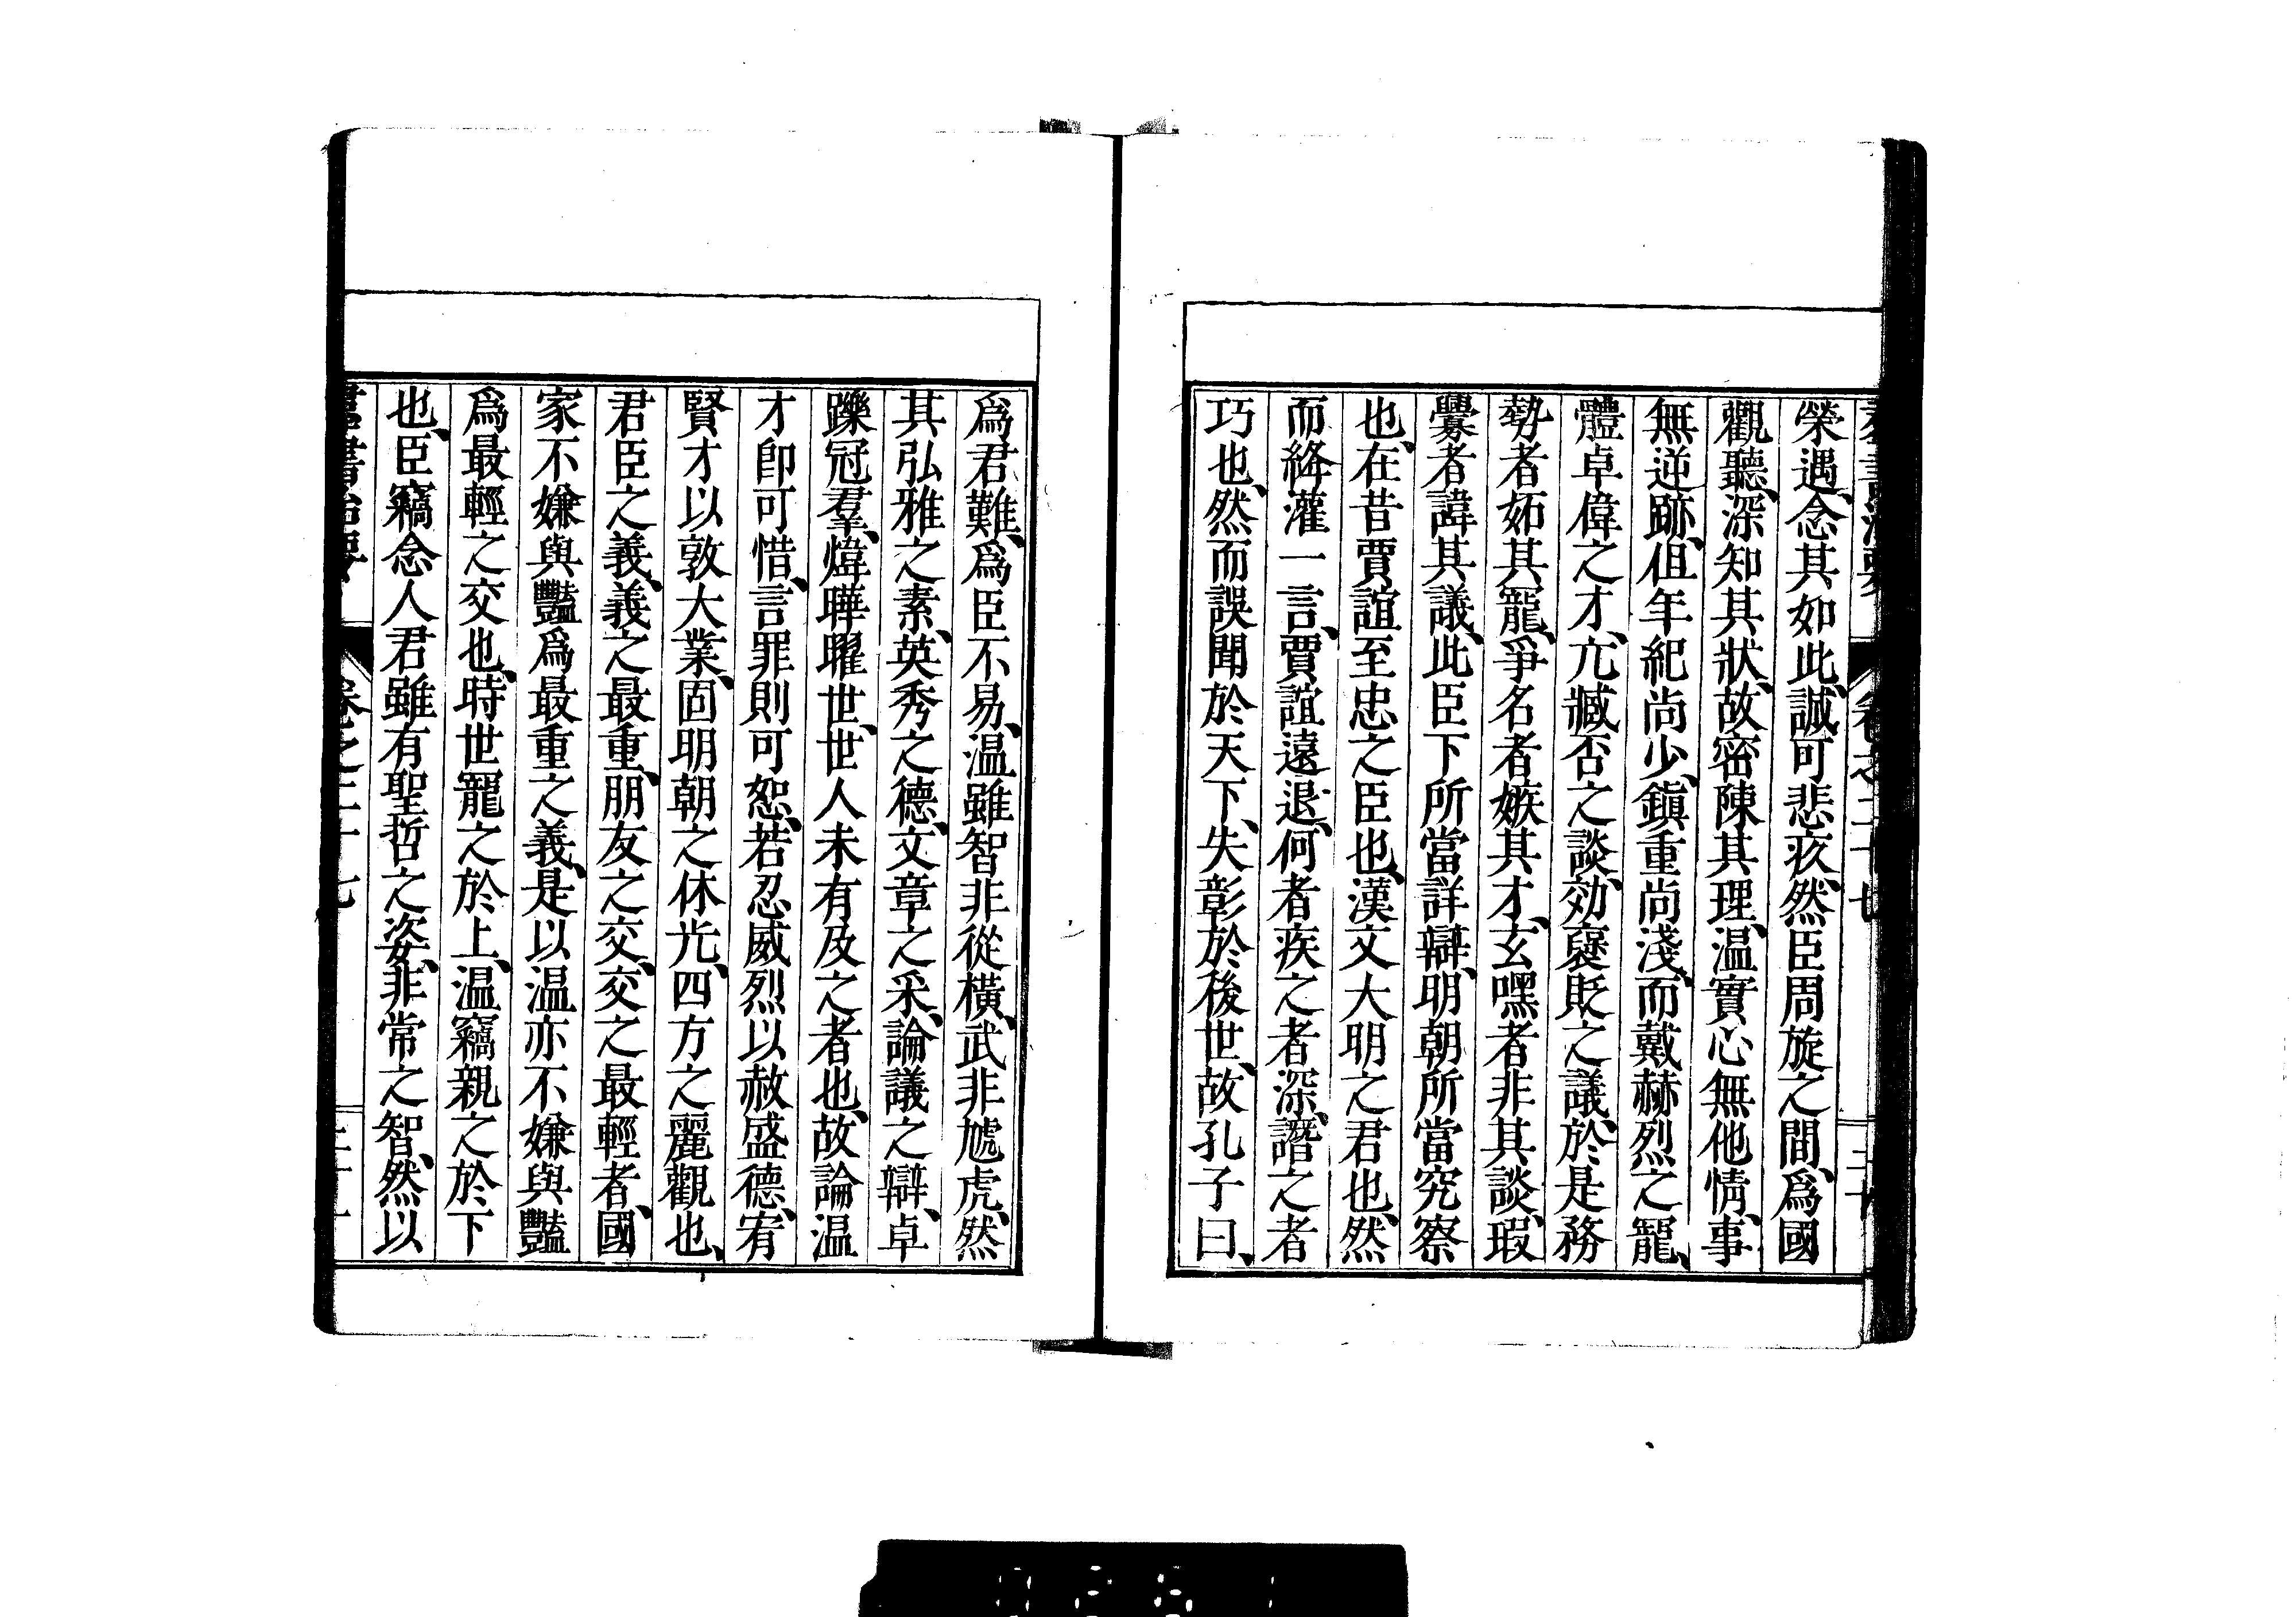 榮遇、念其如此、誠可悲疚、然臣周旋之間、爲國
觀聽、深知其狀、故密陳其理、温實心無他情、事
無逆跡、但年紀尚少、鎭重尚淺、而戴赫烈之寵、
體卓偉之才、亢臧否之談、効襃貶之議、於是務
勢者妬其寵、爭名者嫉其才、玄嘿者非其談、瑕
釁者諱其議、此臣下所當詳辯、明朝所當究察
也、在昔賈誼至忠之臣也、漢文大明之君也、然
而絳灌一言、賈誼遠退、何者疾之者深、譖之者
巧也、然而誤聞於天下、失彰於後世、故孔子曰、
爲君難、爲臣不易、温雖智非從橫、武非虓虎、然
其弘雅之素、英秀之德、文章之采、論議之辯、卓
躒冠羣、煒曄曜世、世人未有及之者也、故論温
才卽可惜、言罪則可恕、若忍威烈以赦盛德、宥
賢才以敦大業、固明朝之休光、四方之麗觀也、
君臣之義、義之最重、朋友之交、交之最輕者、國
家不嫌與豔爲最重之義、是以温亦不嫌與豔
爲最輕之交也、時世寵之於上、温竊親之於下
也、臣竊念人君雖有聖哲之姿、非常之智、然以
羣書治要 卷之二十七